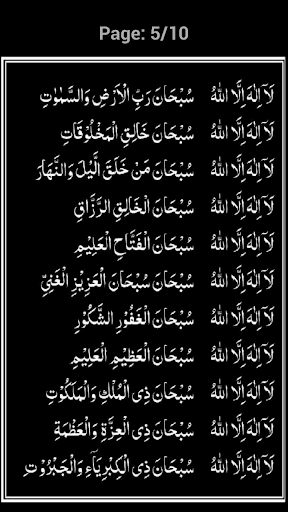 Page: 5/10
لَآ اِلٰهَ اِلَّا اللهُ سُبْحَانَ رَبِّ الْاَرْضِ وَالسَّمٰوٰتِ
لَآ اِلٰهَ اِلَّا اللهُ سُبْحَانَ خَالِقِ الْمَخْلُوْقَاتِ
لَآ اِلٰهَ اِلَّا اللهُ سُبْحَانَ مَنْ خَلَقَ الَّيْلَ وَالنَّهَارَ
لَآ اِلٰهَ اِلَّا اللهُ سُبْحَانَ الْخَالِقِ الرَّزَّاقِ
لَآ اِلٰهَ اِلَّا اللهُ سُبْحَانَ الْفَتَّاحِ الْعَلِيْمِ
لَآ اِلٰهَ اِلَّا اللهُ سُبْحَانَ سُبْحَانَ الْعَزِيْزِ الْغَنِيِّ
لَآ اِلٰهَ اِلَّا اللهُ سُبْحَانَ الْغَفُوْرِ الشَّكُوْرِ
لَآ اِلٰهَ اِلَّا اللهُ سُبْحَانَ الْعَظِيْمِ الْعَلِيْمِ
لَآ اِلٰهَ اِلَّا اللهُ سُبْحَانَ ذِى الْمُلْكِ وَالْمَلَكُوْتِ
لَآ اِلٰهَ اِلَّا اللهُ سُبْحَانَ ذِى الْعِزَّةِ وَالْعَظْمَةِ
لَآ اِلٰهَ اِلَّا اللهُ سُبْحَانَ ذِى الْكِبْرِيَآءِ وَالْجَبْرُوْتِ